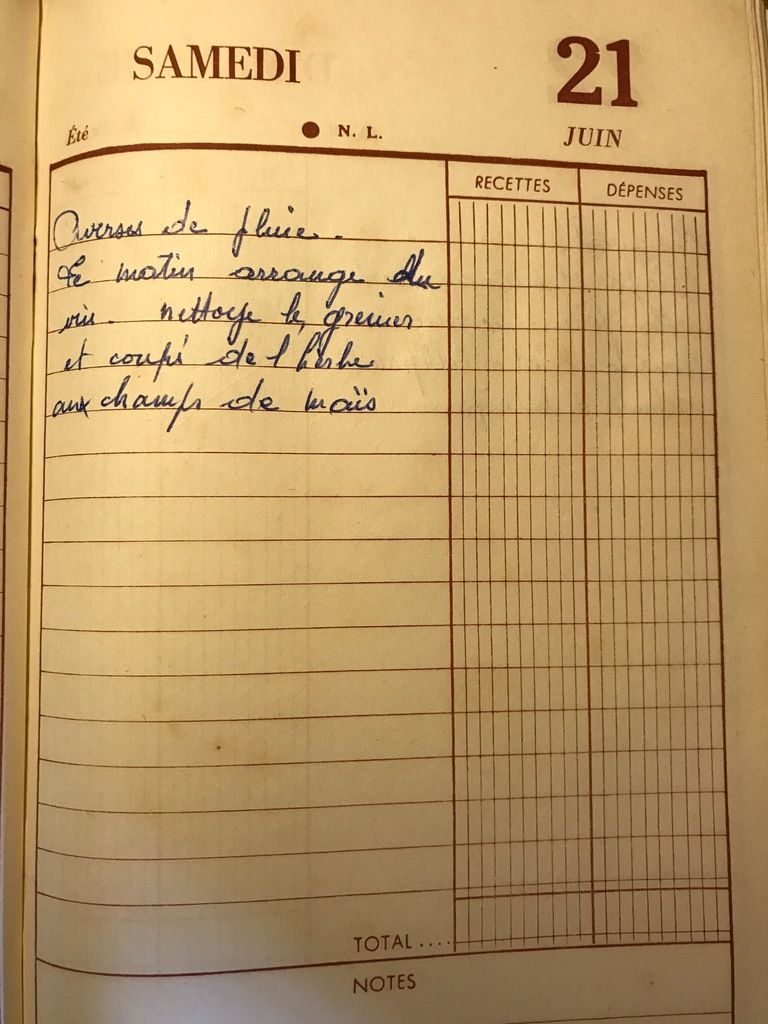 SAMEDI 21
Été ● N. L. JUIN
RECETTES DÉPENSES
Averses de pluie.
Le matin arrangé du
vin. nettoyé le grenier
et coupé de l'herbe
aux champs de maïs
TOTAL ....
NOTES